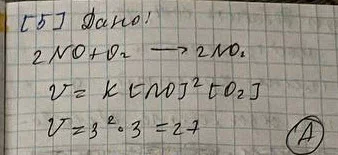 [5] Дано:
2NO+O₂ → 2NO₂
V = K [NO]² [O₂]
V = 3² · 3 = 27
A